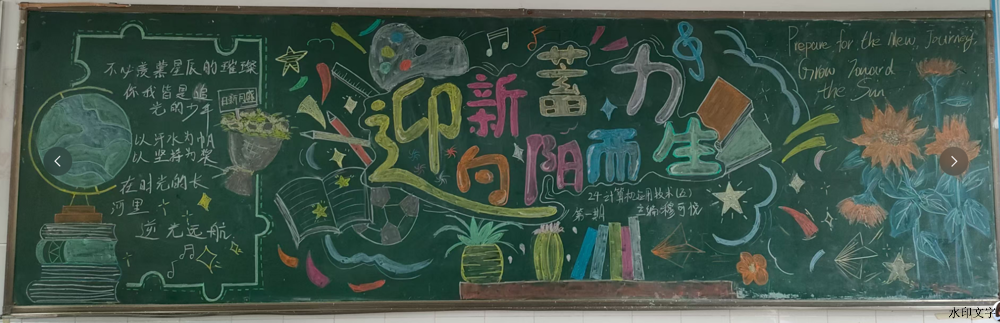 不必羡慕星辰的璀璨
你我皆是追
光的少年
以汗水为帆
以坚持为桨
在时光的长
河里
逆光远航
日新月异
迎新蓄力
向阳而生
24计算机应用技术(2)
第一期 主编:穆可悦
Prepare for the New Journey,
Grow Toward
the Sun
水印文字